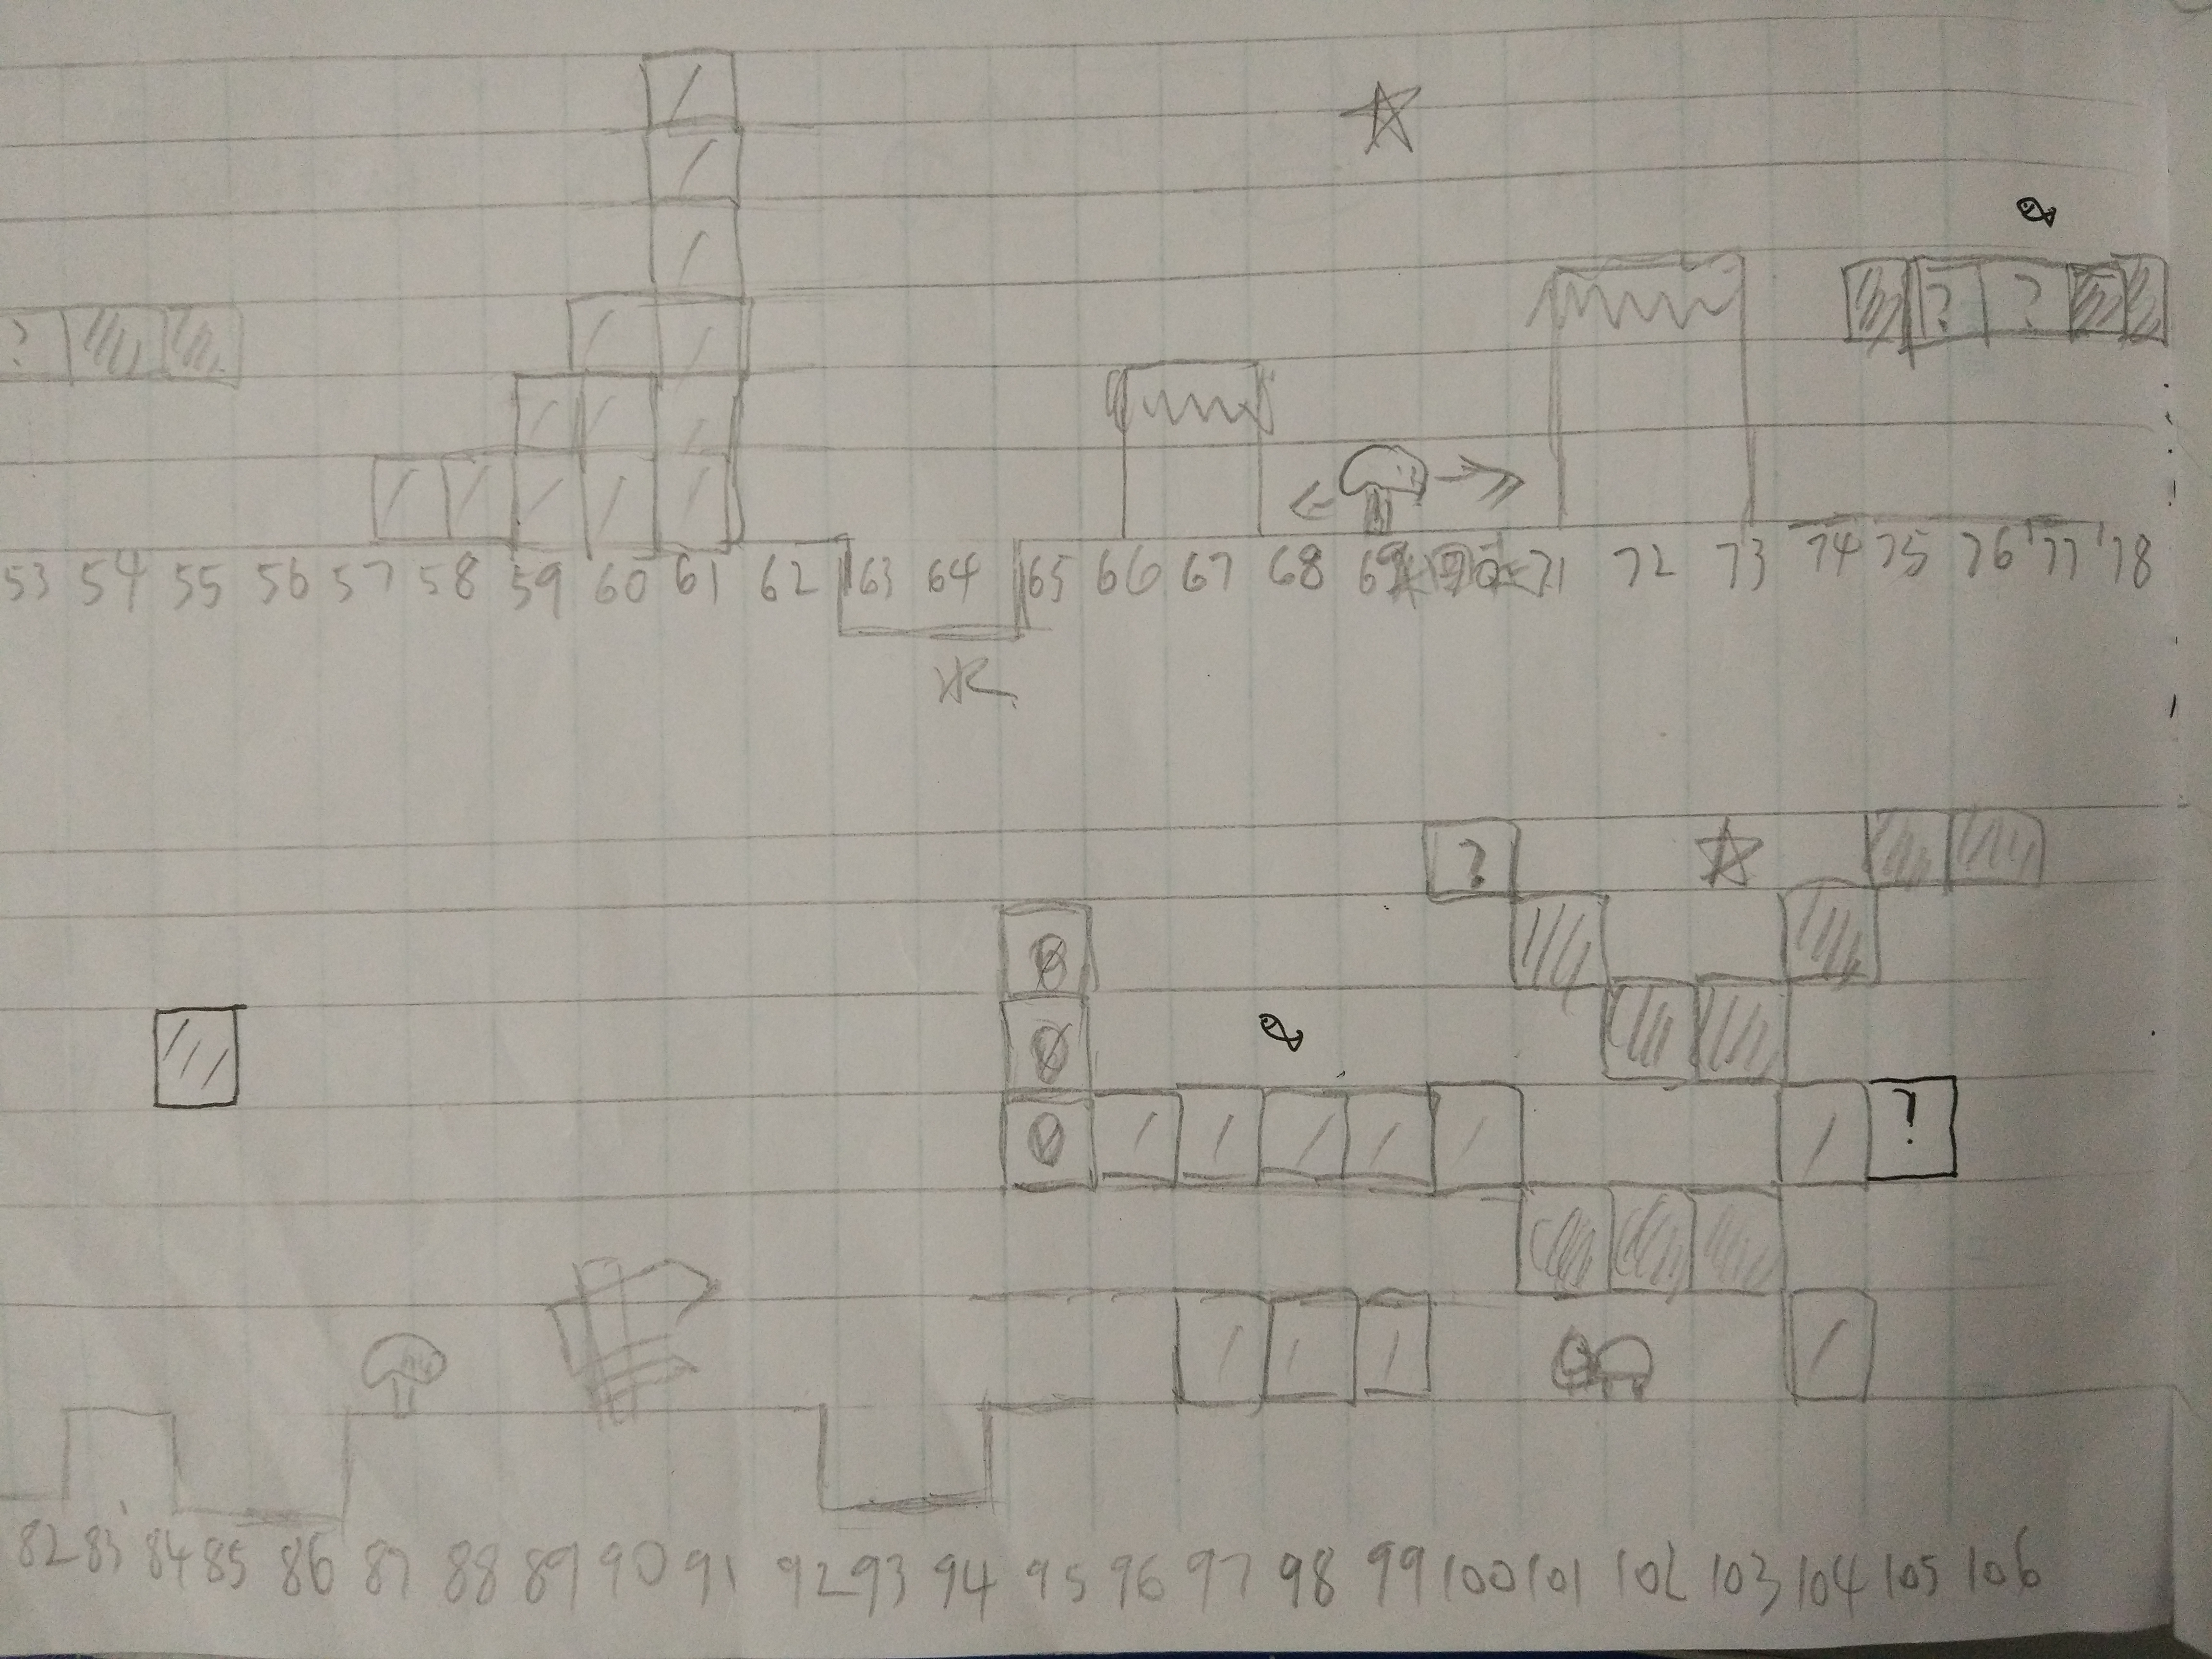 ?
? ?
53 54 55 56 57 58 59 60 61 62 63 64 65 66 67 68 69 71 72 73 74 75 76 77 78
水
?
0
0
0
?
82 83 84 85 86 87 88 89 90 91 92 93 94 95 96 97 98 99 100 101 102 103 104 105 106